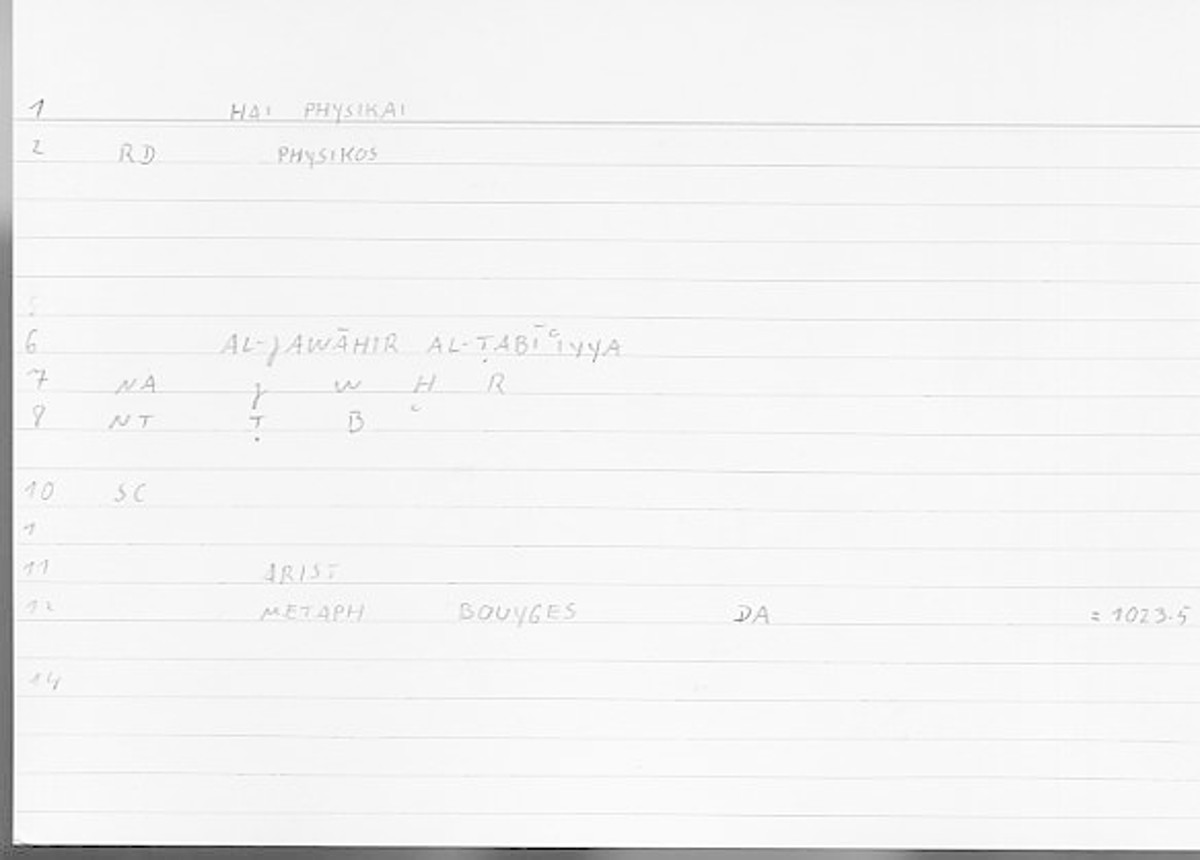 1 HAI PHYSIKAI
2 RD PHYSIKOS
5
6 AL-JAWĀHIR AL-ṬABĪʿIYYA
7 NA J W H R
8 NT Ṭ B ʿ
10 SC
1
11 ARIST
12 METAPH BOUYGES DA = 1023.5
14